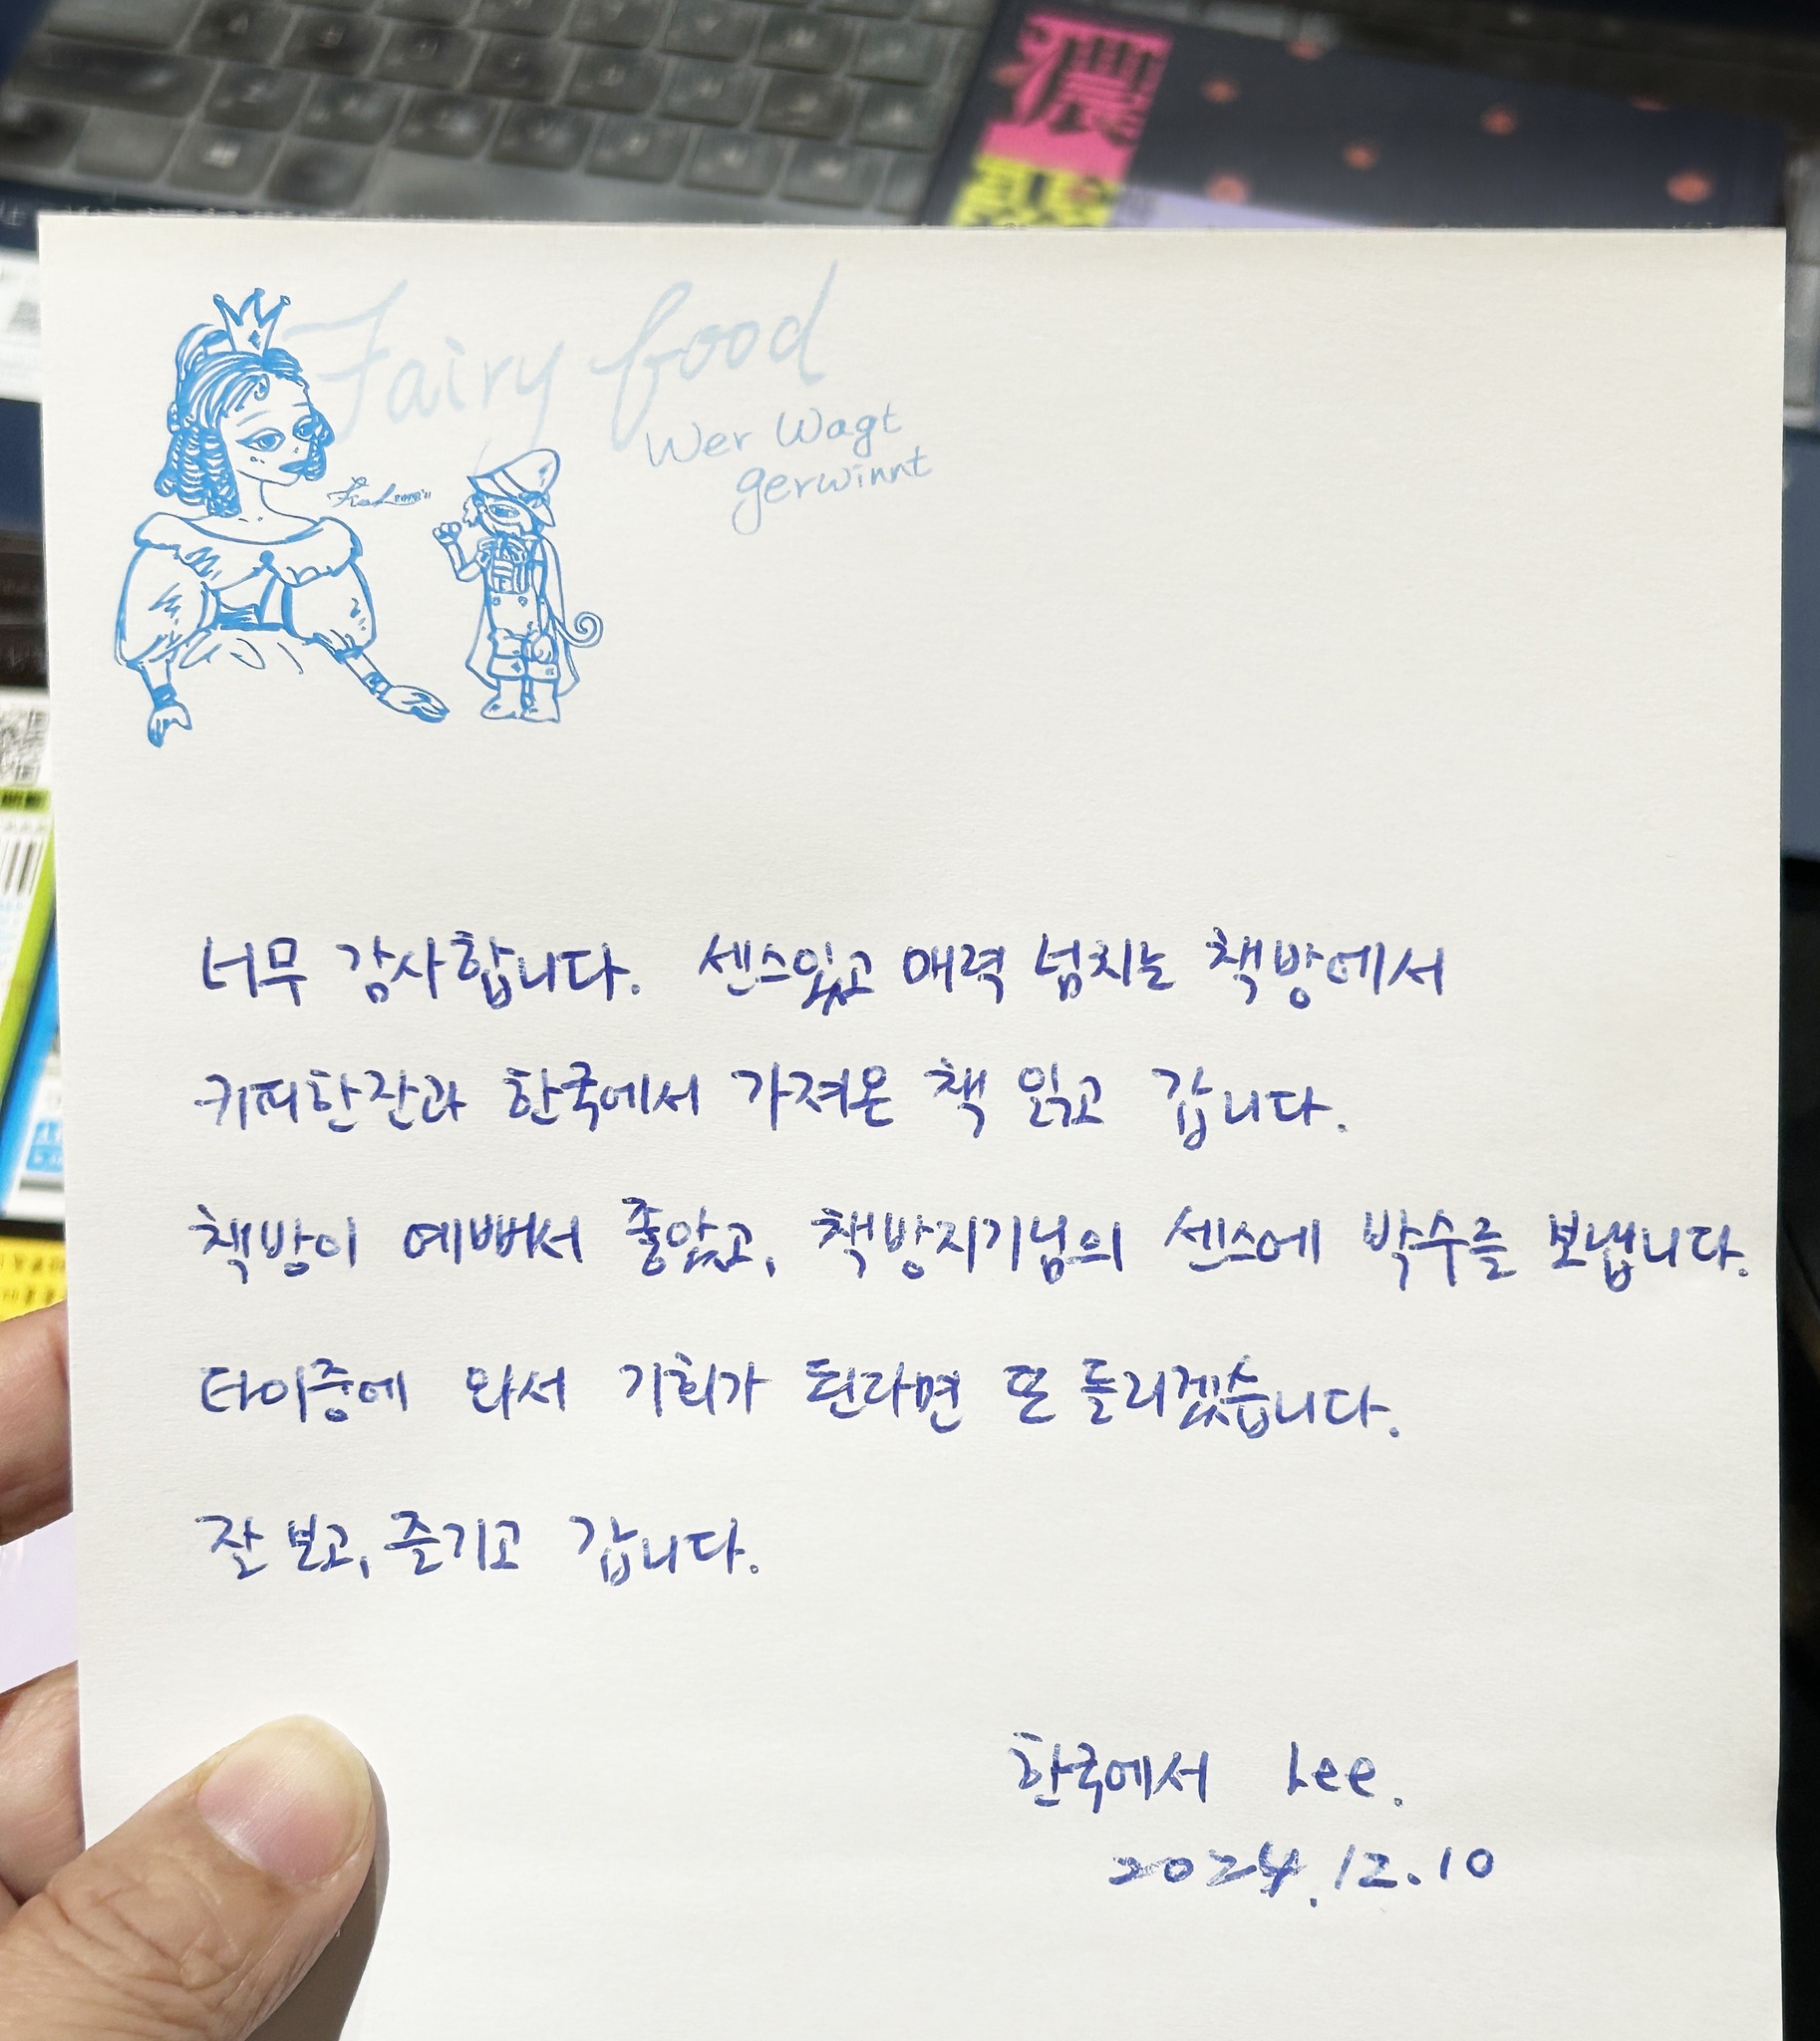 濃
Fairy food
Wer Wagt
gerwinnt
너무 감사합니다. 센스있고 매력 넘치는 책방에서
커피한잔과 한국에서 가져온 책 읽고 갑니다.
책방이 예뻐서 좋았고, 책방지기님의 센스에 박수를 보냅니다.
타이중에 와서 기회가 된다면 또 들리겠습니다.
잘 보고, 즐기고 갑니다.
한국에서 Lee.
2024.12.10